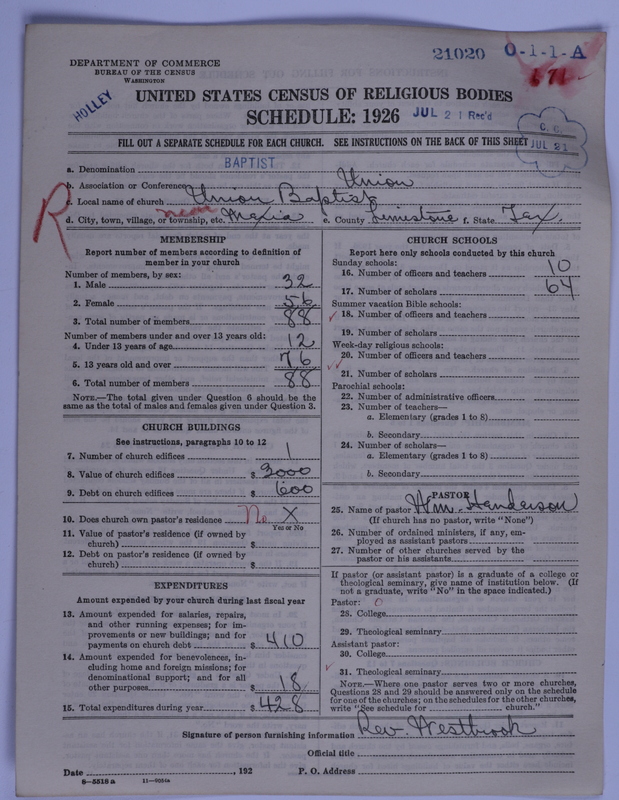 21020 O-1-1-A
671
DEPARTMENT OF COMMERCE
BUREAU OF THE CENSUS
WASHINGTON
HOLLEY
UNITED STATES CENSUS OF RELIGIOUS BODIES
SCHEDULE: 1926 JUL 21 Rec'd
JUL 21
FILL OUT A SEPARATE SCHEDULE FOR EACH CHURCH. SEE INSTRUCTIONS ON THE BACK OF THIS SHEET
a. Denomination BAPTIST
b. Association or Conference Union
R
c. Local name of church Union Baptist
d. City, town, village, or township, etc. near Mexia e. County Limestone f. State Tex.
MEMBERSHIP
Report number of members according to definition of
member in your church
Number of members, by sex:
1. Male 32
2. Female 56
3. Total number of members 88
Number of members under and over 13 years old:
4. Under 13 years of age 12
5. 13 years old and over 76
6. Total number of members 88
NOTE.—The total given under Question 6 should be
same as the total of males and females given under Question 3.
CHURCH BUILDINGS
See instructions, paragraphs 10 to 12
7. Number of church edifices 1
8. Value of church edifices $ 3000
9. Debt on church edifices $ 600
10. Does church own pastor's residence No X
Yes or No
11. Value of pastor's residence (if owned by
church) $
12. Debt on pastor's residence (if owned by
church) $
EXPENDITURES
Amount expended by your church during last fiscal year
13. Amount expended for salaries, repairs,
and other running expenses; for im-
provements or new buildings; and for
payments on church debt $ 410
14. Amount expended for benevolences, in-
cluding home and foreign missions; for
denominational support; and for all
other purposes $ 18
15. Total expenditures during year $ 428
CHURCH SCHOOLS
Report here only schools conducted by this church
Sunday schools:
16. Number of officers and teachers 10
17. Number of scholars 64
Summer vacation Bible schools:
18. Number of officers and teachers
19. Number of scholars
Week-day religious schools:
20. Number of officers and teachers
21. Number of scholars
Parochial schools:
22. Number of administrative officers
23. Number of teachers—
a. Elementary (grades 1 to 8)
b. Secondary
24. Number of scholars—
a. Elementary (grades 1 to 8)
b. Secondary
PASTOR
25. Name of pastor Wm. Handerson
(If church has no pastor, write "None")
26. Number of ordained ministers, if any, em-
ployed as assistant pastors
27. Number of other churches served by the
pastor or his assistants
If pastor (or assistant pastor) is a graduate of a college or
theological seminary, give name of institution below. (If
not a graduate, write "No" in the space indicated.)
Pastor: 0
28. College
29. Theological seminary
Assistant pastor:
30. College
31. Theological seminary
NOTE.—Where one pastor serves two or more churches,
Questions 28 and 29 should be answered only on the schedule
for one of the churches; on the schedules for the other churches,
write "See schedule for church."
Signature of person furnishing information Rev Westbrook
Official title
Date , 192 P. O. Address
8—5518 a 11—9024a